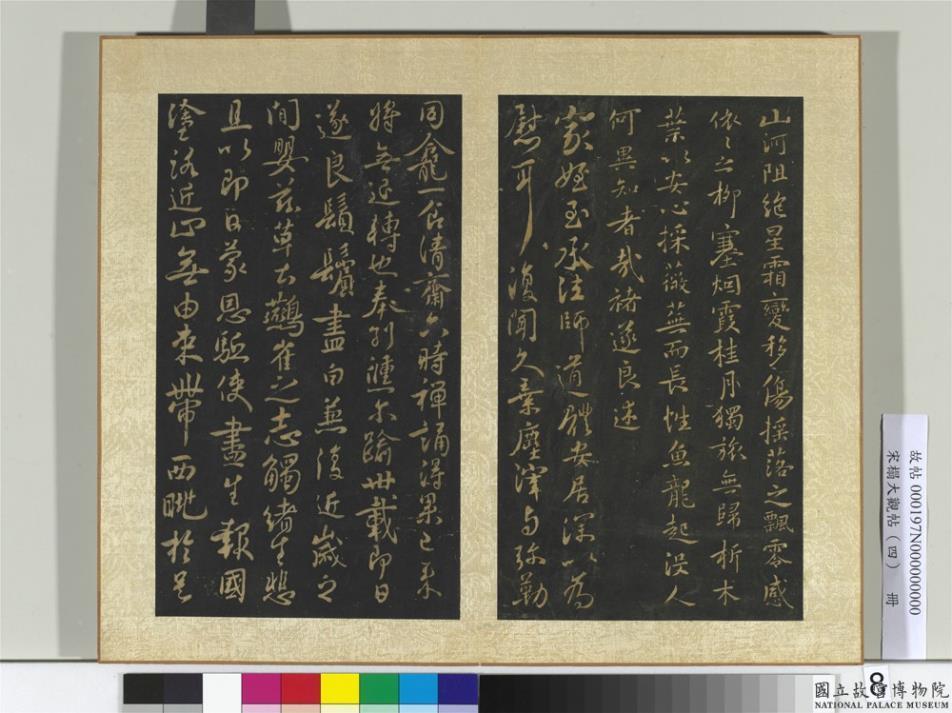 山河阻絶星霜變移傷摇落之飄零感
依〻之柳塞烟霞桂月獨旅無歸析木
葉以安心採薇蕪而長性魚龍起没人
何異知者哉褚遂良述
家姪至承法師道體安居深以為
慰耳復聞久棄塵滓与弥勒
同龕一食清齋六時禪誦得果已来
將無退轉也奉别倐尒踰卅載即日
遂良鬚鬢盡白兼復近歲之
間嬰兹草土鷰雀之志觸緒生悲
且以即日蒙恩駈使盡生報國
塗路近止無由束帶西眺於邑
故帖000197N000000000
宋搨大觀帖（四） 冊
8
國立故宮博物院
NATIONAL PALACE MUSEUM